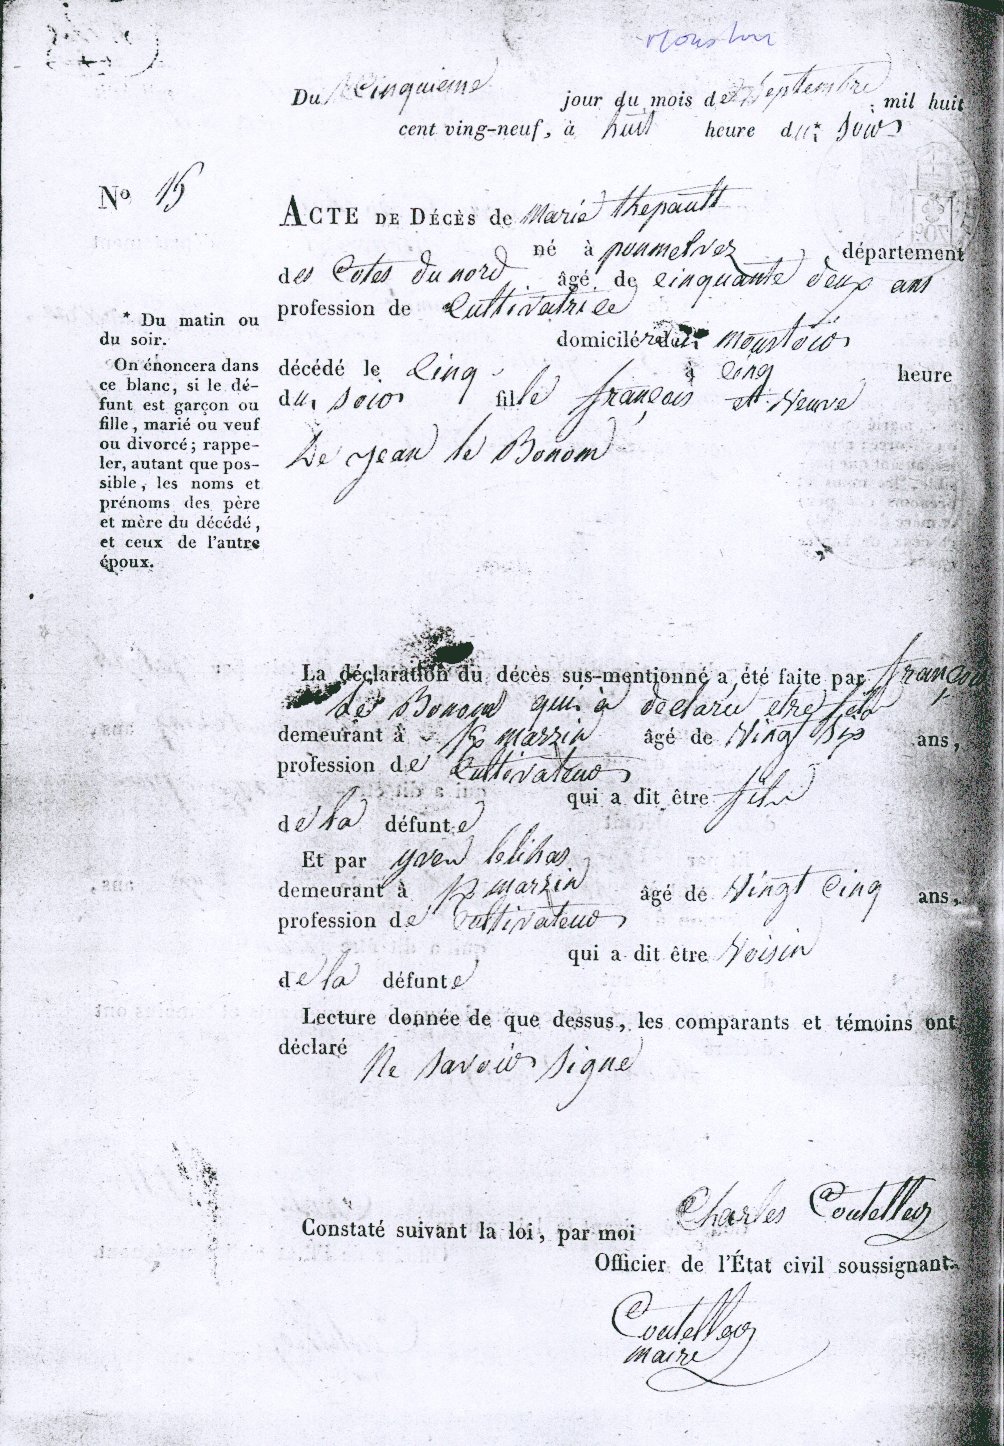 Du Cinquieme jour du mois de Septembre mil huit
cent ving-neuf, à huit heure du * soir
Nº 15
ACTE DE DÉCÈS de Marie thepault
né à poumelvez département
des Cotes du nord âgé de cinquante deux ans
profession de Cultivatrice
domicilé moustoir
décédé le Cinq à Cinq heure
du soir fille françois et Veuve
De jean le Bonom
* Du matin ou
du soir.
On énoncera dans
ce blanc, si le dé-
funt est garçon ou
fille, marié ou veuf
ou divorcé; rappe-
ler, autant que pos-
sible, les noms et
prénoms des père
et mère du décédé,
et ceux de l'autre
époux.
La déclaration du décès sus-mentionné a été faite par françois
Le Bonom qui à declaré etre fils
demeurant à marzin âgé de Ving Six ans,
profession de Cultivateur
qui a dit être fils
de la défunte
Et par yven
demeurant à marzin âgé de Vingt Cinq ans,
profession de Cultivateur
qui a dit être Voisin
de la défunte
Lecture donnée de que dessus, les comparants et témoins ont
déclaré Ne savoir signe
Constaté suivant la loi, par moi Charles Coutellec
Officier de l'État civil soussignant.
Coutellec
maire